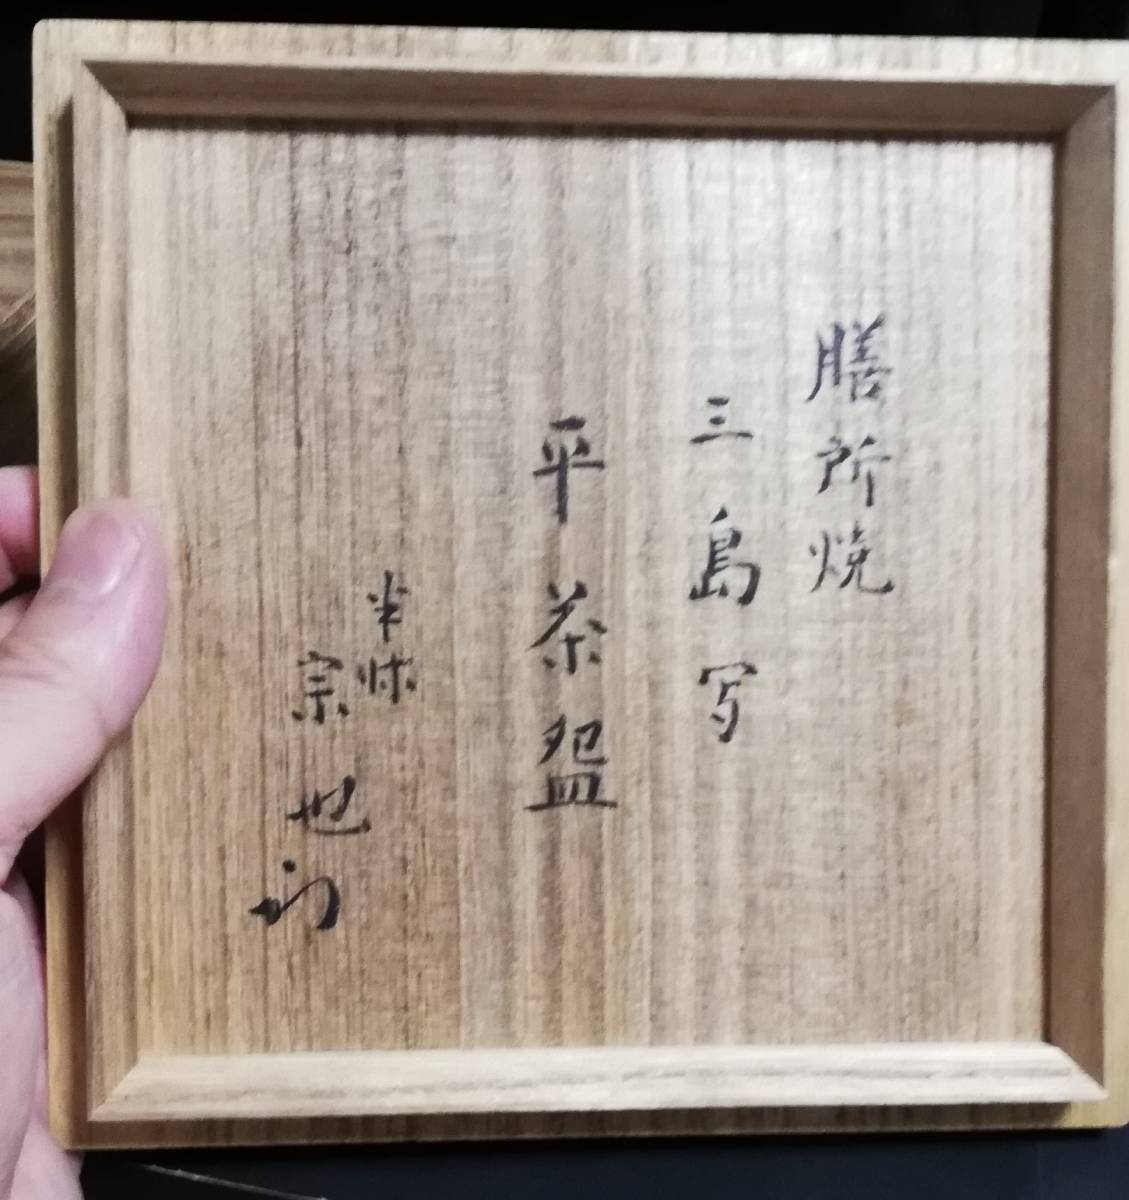 膳所焼
三島写
平茶盌
半床
宗也